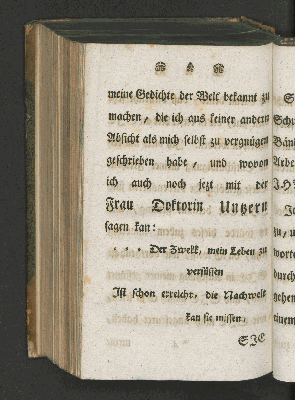 meine Gedichte der Welt bekannt zu
machen, die ich aus keiner andern
Absicht als mich selbst zu vergnügen
geschrieben habe, und wovon
ich auch noch jezt mit der
Frau Doktorin Unzern
sagen kan:
. . . Der Zwekk, mein Leben zu
versüssen
Ist schon erreicht, die Nachwelt
kan sie missen.
SJE